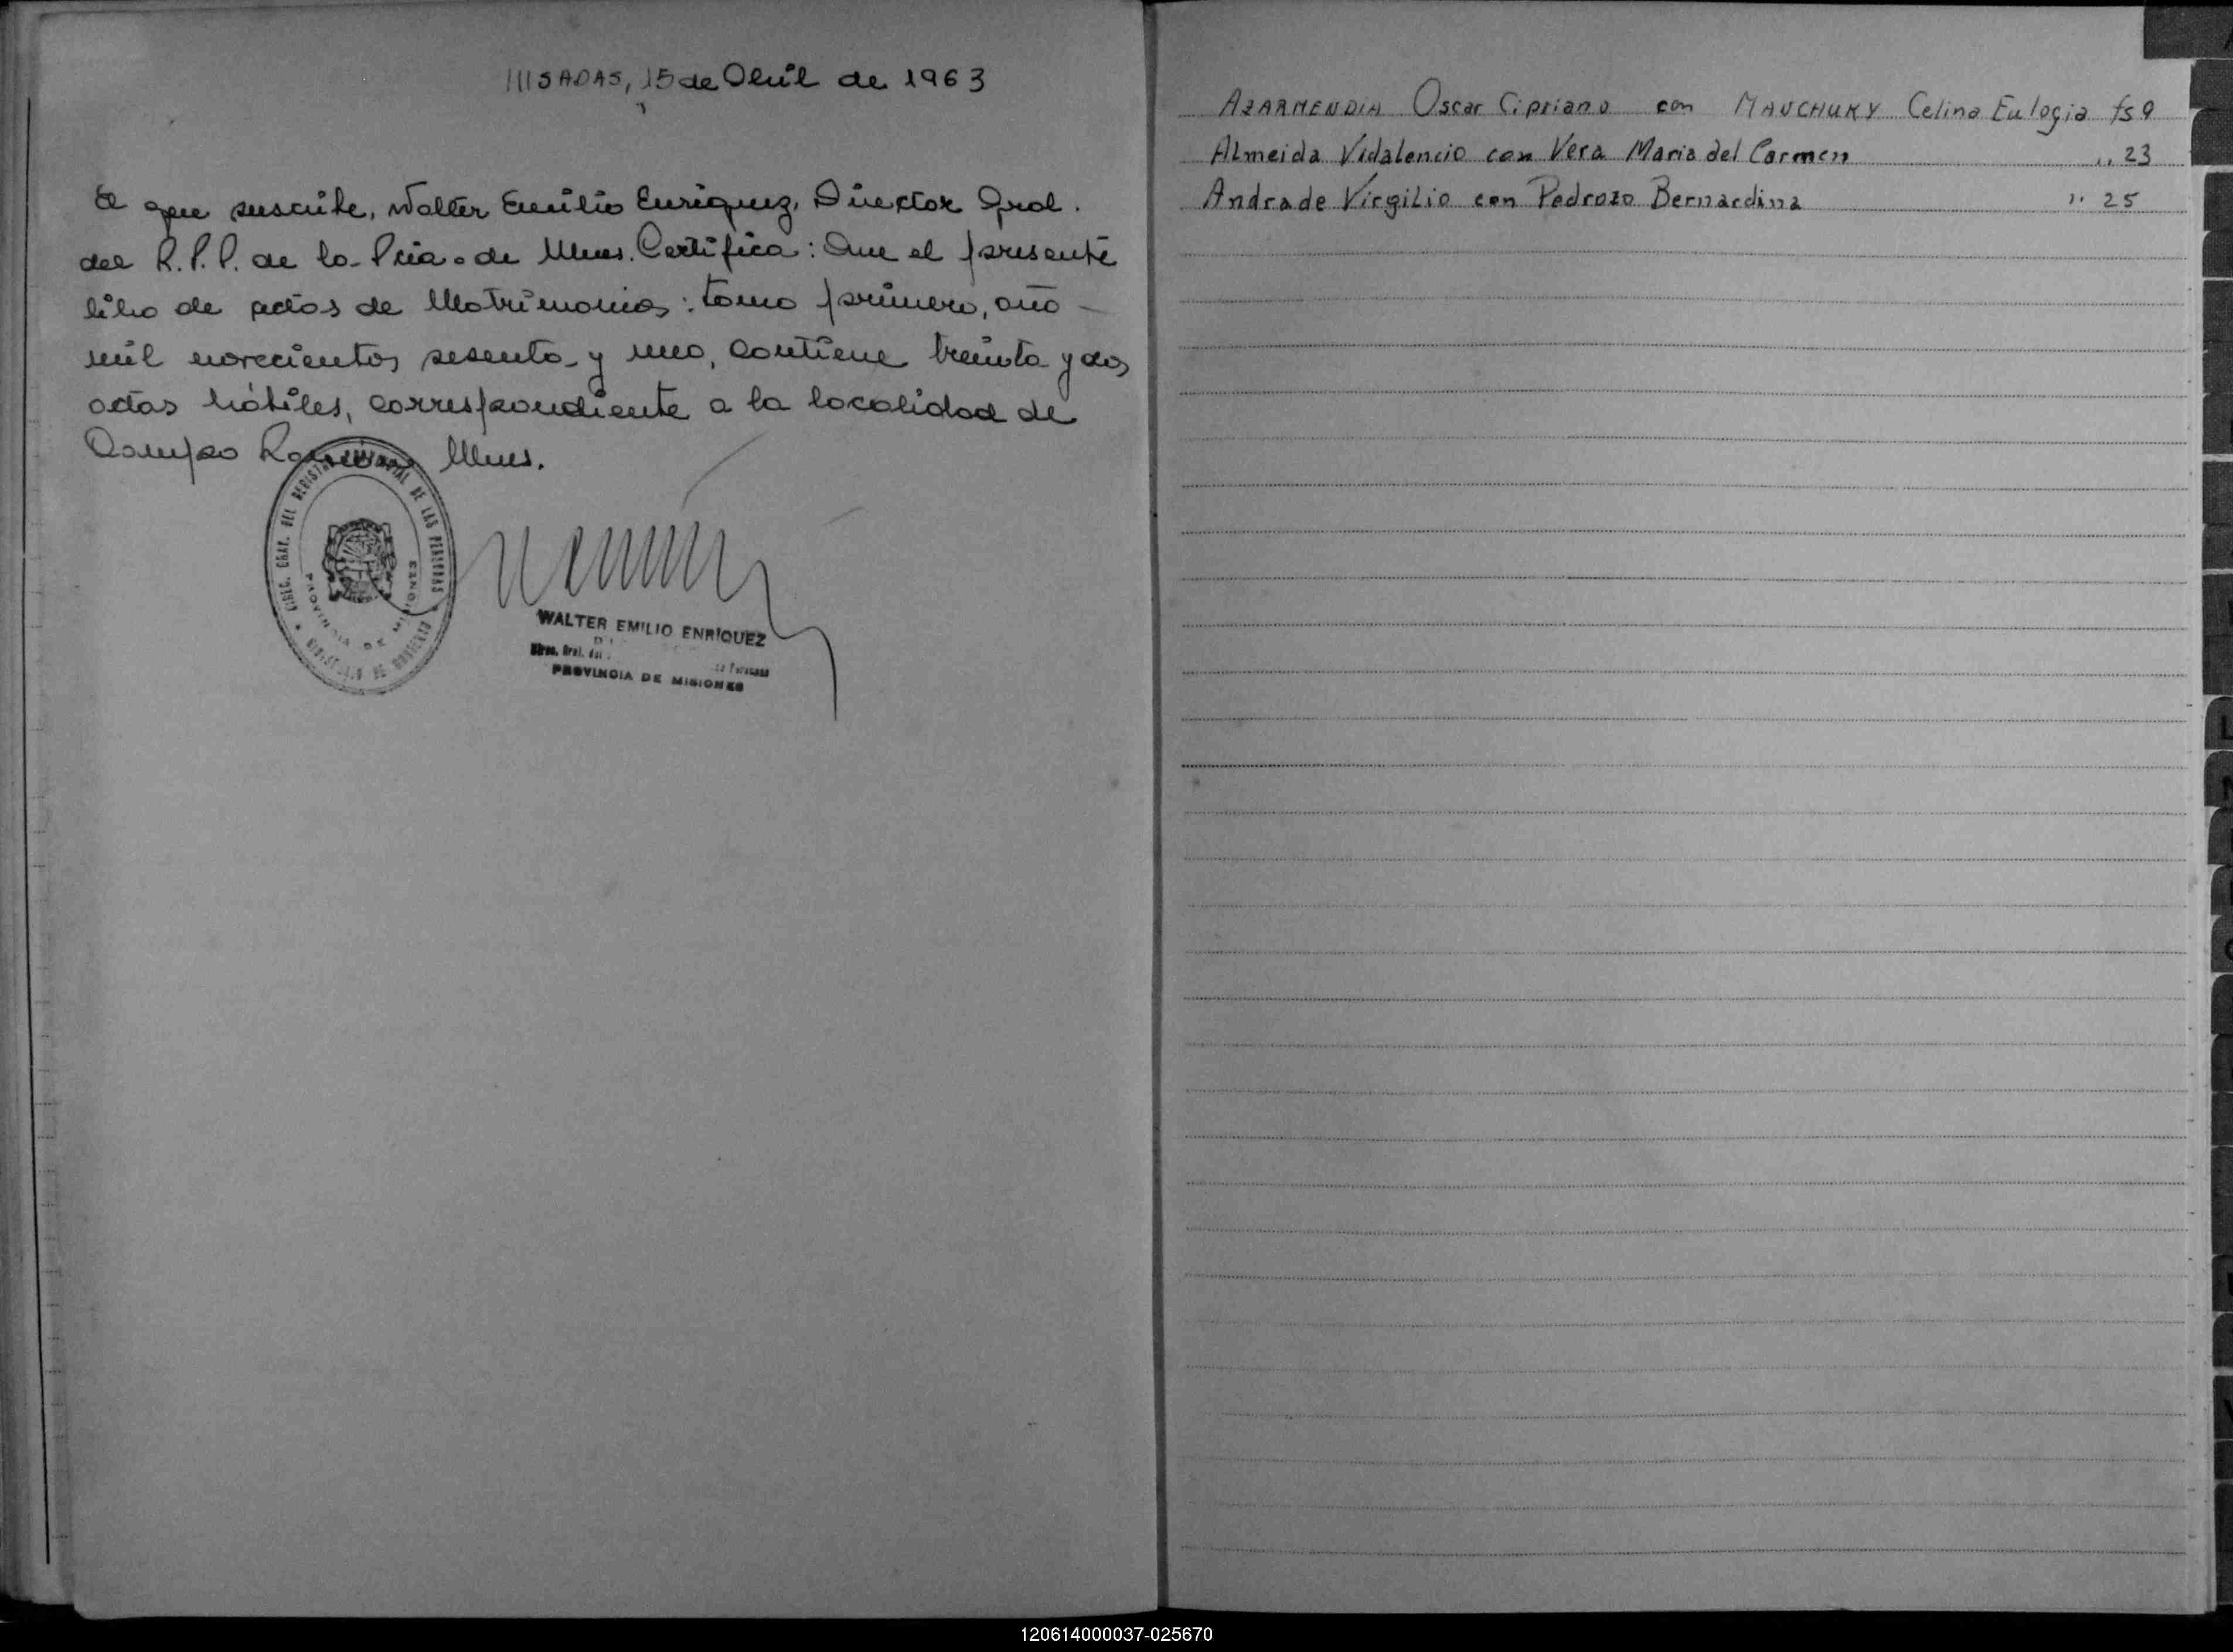 POSADAS, 15 de Abril de 1963
El que suscribe, Walter Emilio Enriquez, Director Gral.
del R.P.P. de la Pcia. de Mnes. Certifica: Que el presente
libro de actas de Matrimonios: tomo primero, año -
mil novecientos sesenta y uno, contiene treinta y dos
actas hábiles, correspondiente a la localidad de
Campo Ramón Mnes.
DIREC. GRAL. DEL REGISTRO PROVINCIAL DE LAS PERSONAS
PROVINCIA DE MISIONES
WALTER EMILIO ENRIQUEZ
Direc. Gral. del
PROVINCIA DE MISIONES
AZARMENDIA Oscar Cipriano con MAUCHUKY Celina Eulogia fs 9
Almeida Vidalencio con Vera Maria del Carmen ,, 23
Andrade Virgilio con Pedrozo Bernardina ,, 25
L
N
120614000037-025670